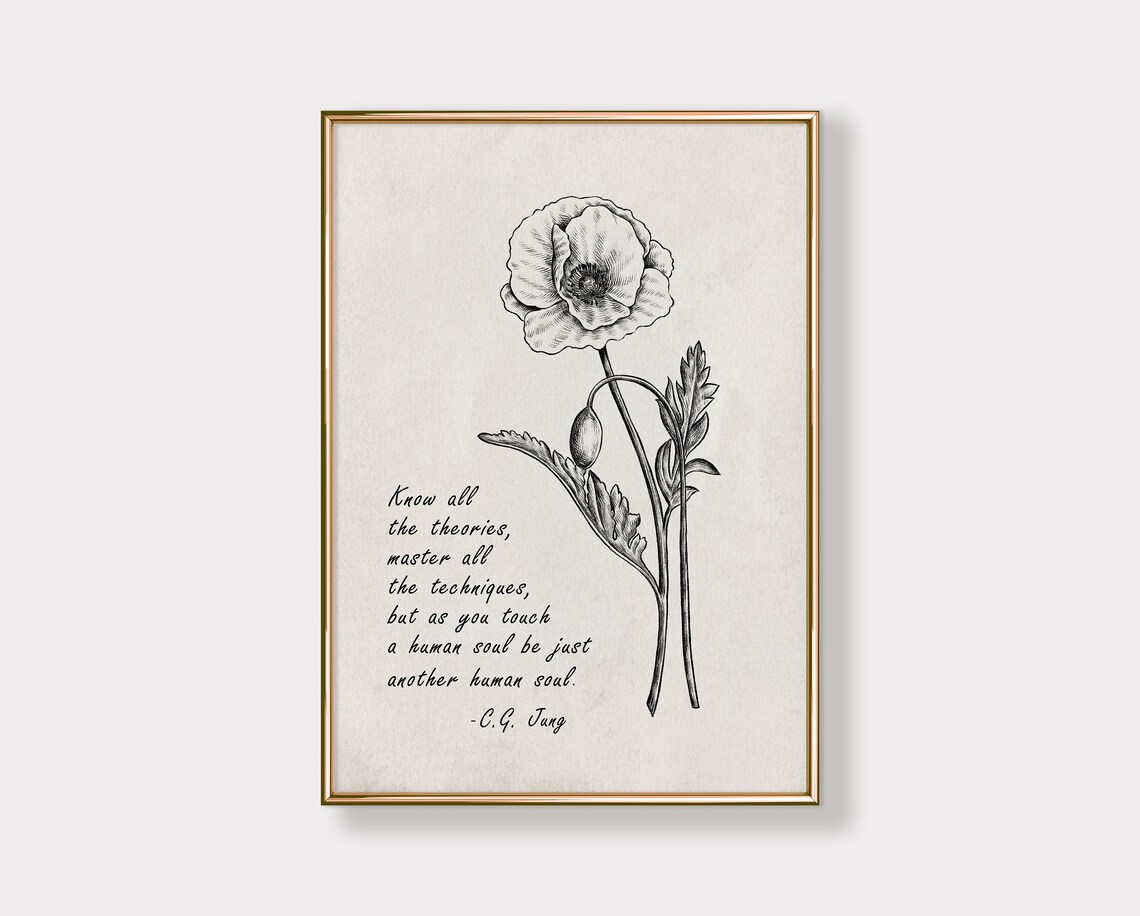 Know all
the theories,
master all
the techniques,
but as you touch
a human soul be just
another human soul.
-C.G. Jung